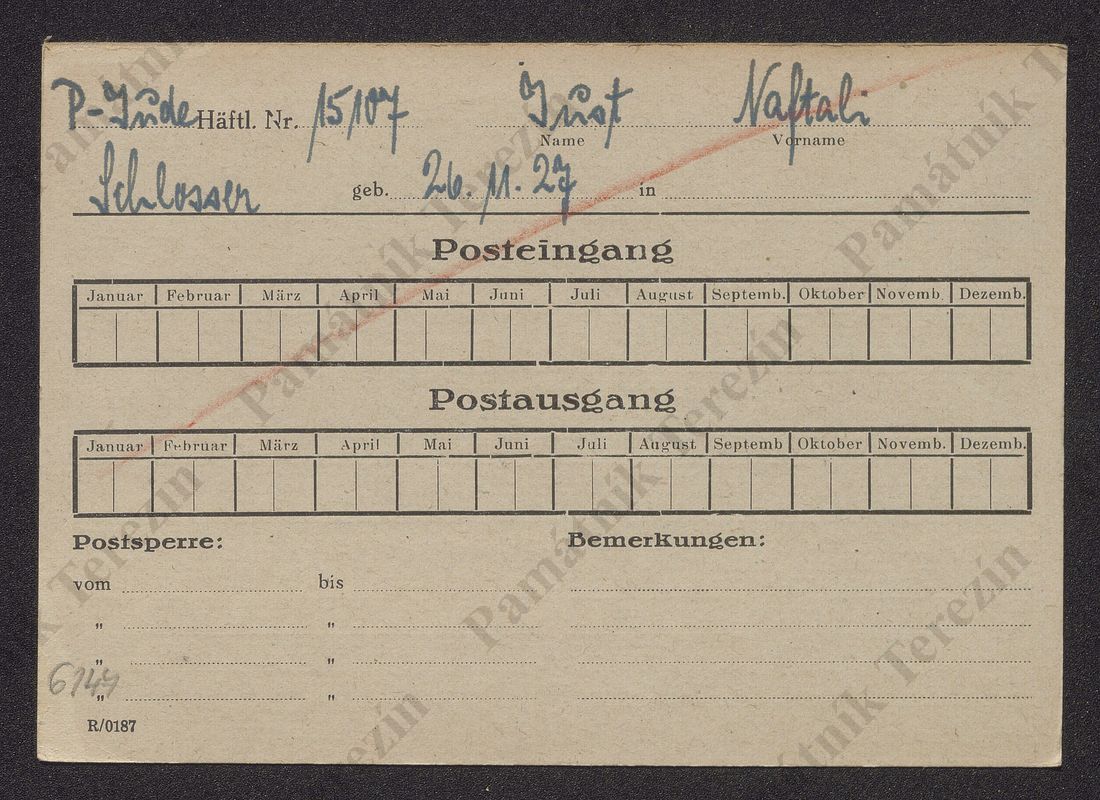 P-Jude Häftl. Nr. 15107 Just Naftali
Name Vorname
Schlosser geb. 26.11.27 in
Posteingang
Januar Februar März April Mai Juni Juli August Septemb. Oktober Novemb. Dezemb.
Postausgang
Januar Februar März April Mai Juni Juli August Septemb Oktober Novemb. Dezemb.
Postsperre: Bemerkungen:
vom bis
" "
" "
6149
" "
R/0187
Památník Terezín